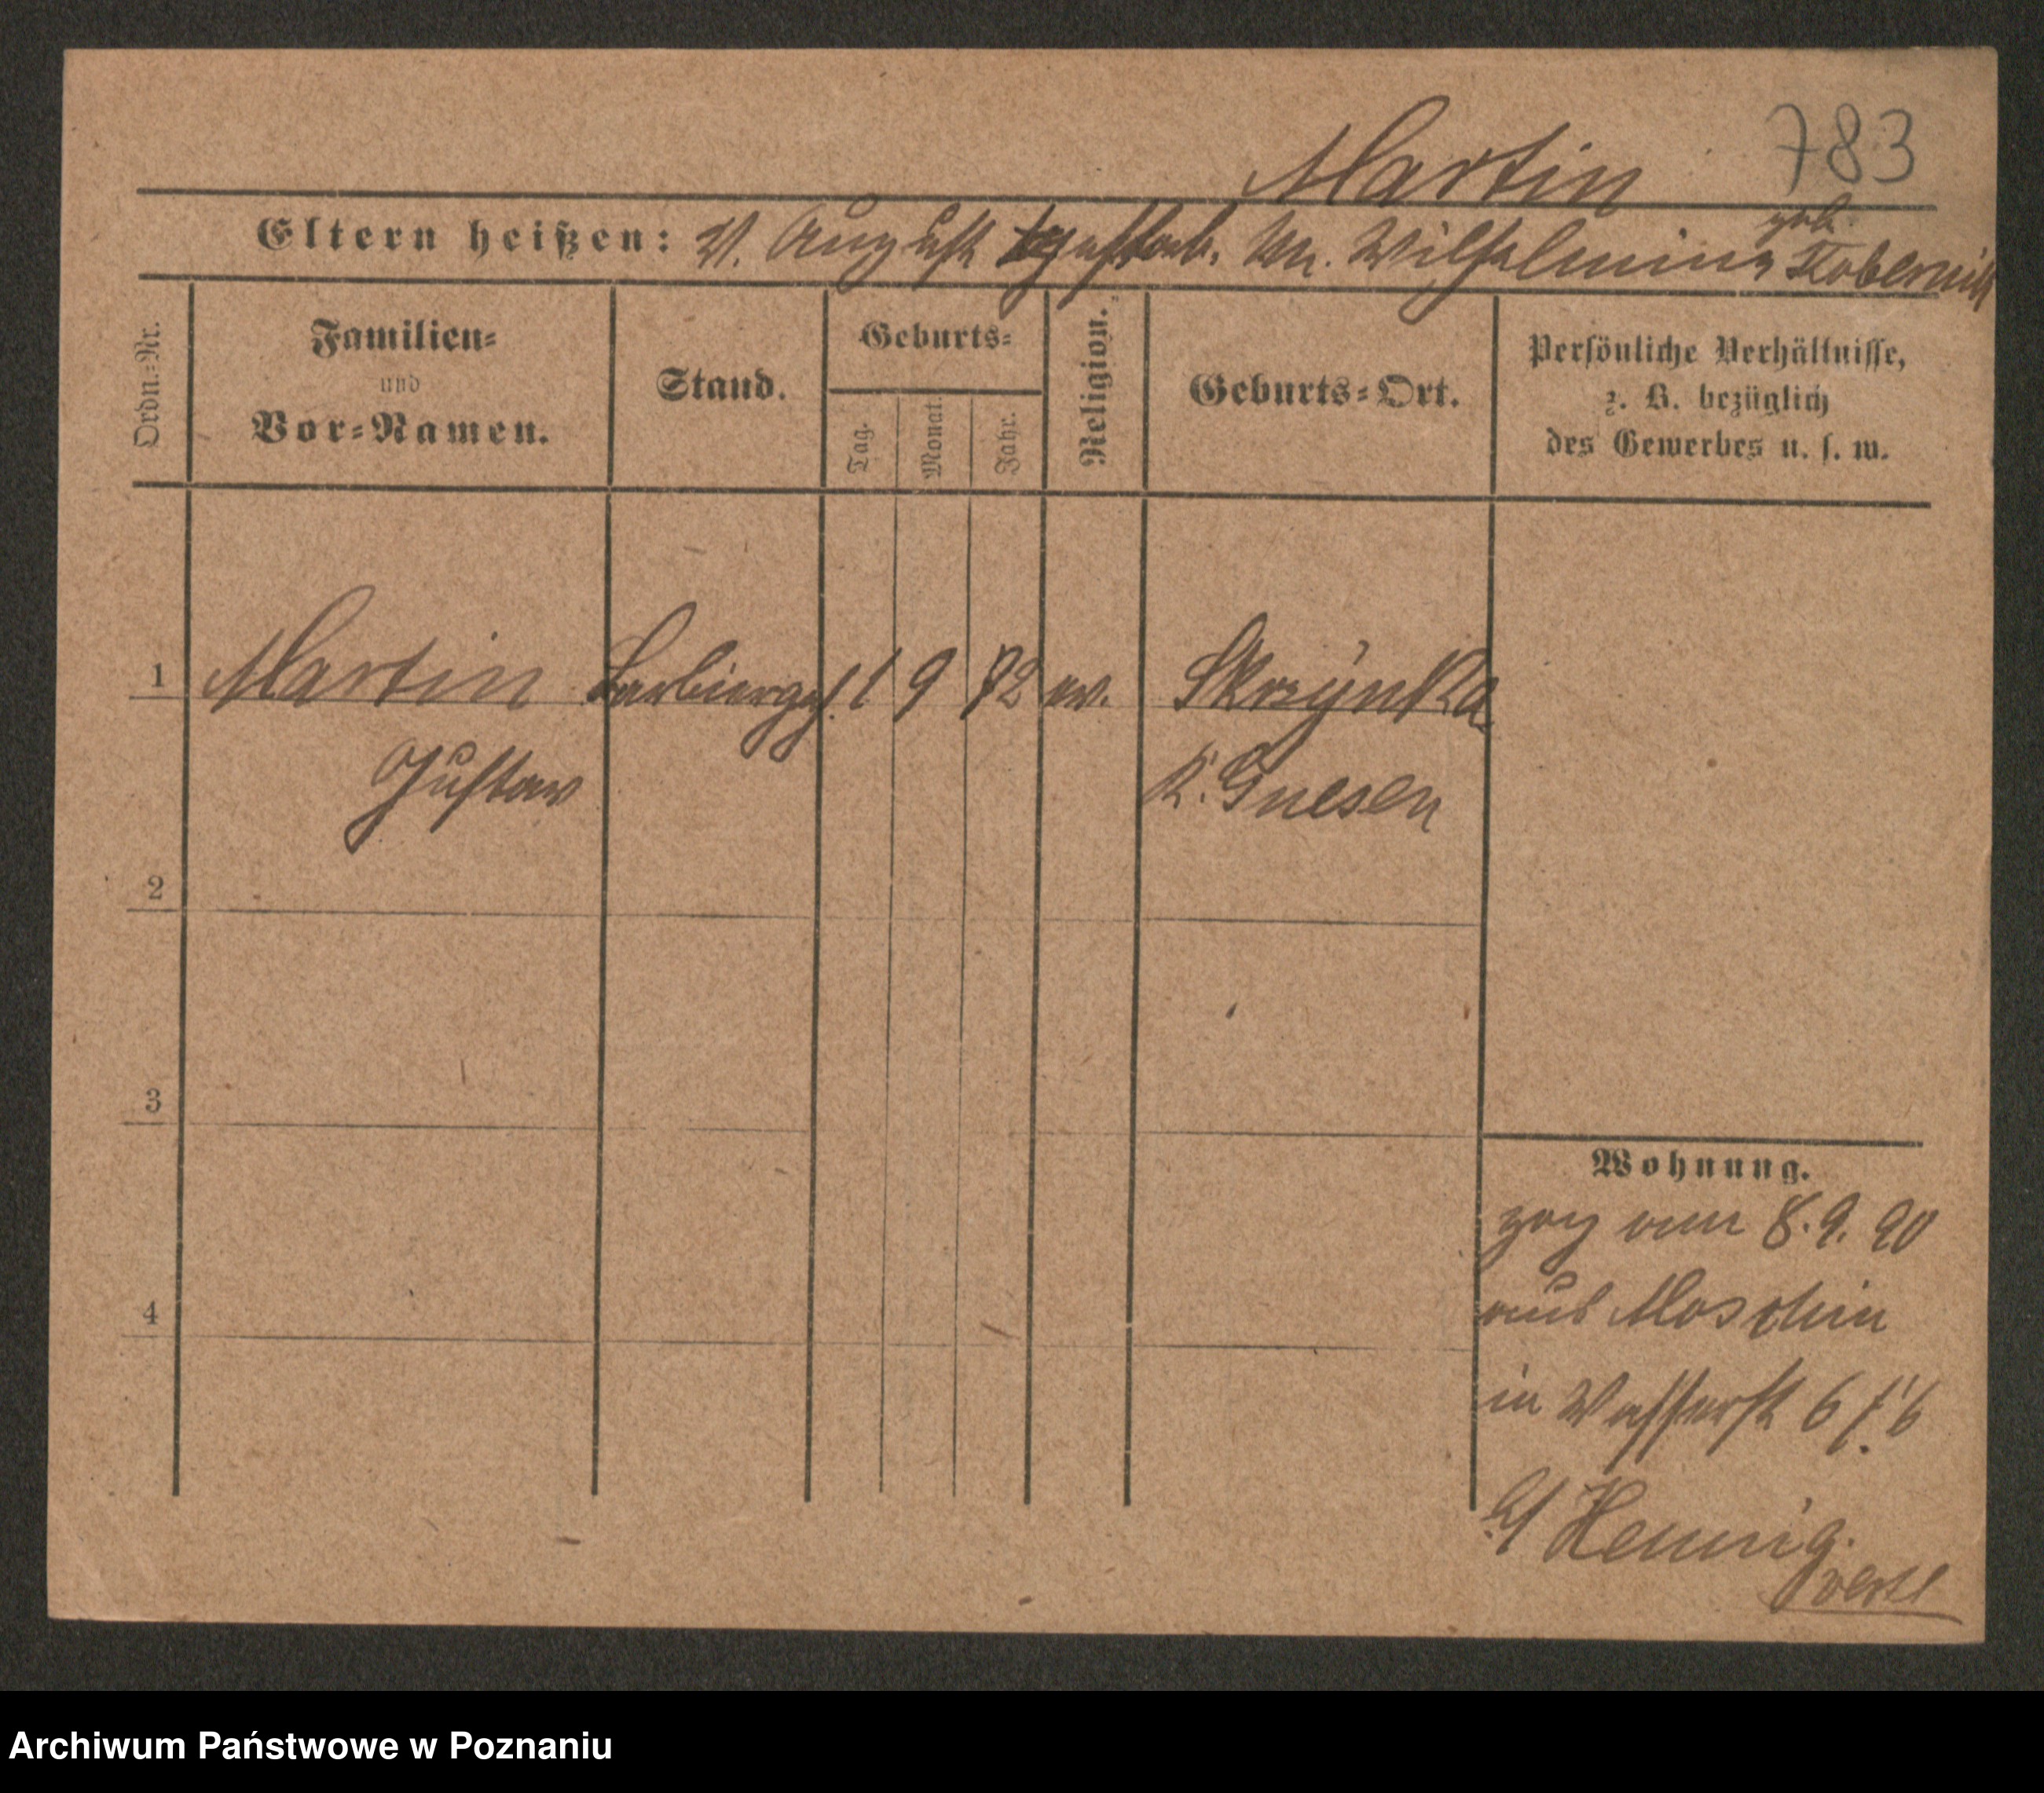 783
Martin
Eltern heißen: V. August gestorb. M. Wilhelmine geb. Kobernik
Ordn.-Nr.
Familien-
und
Vor-Namen.
Stand.
Geburts-
Tag.
Monat.
Jahr.
Religion.
Geburts-Ort.
Persönliche Verhältnisse,
z. B. bezüglich
des Gewerbes u. s. w.
1 Martin Barbiergeh. 1 9 72 ev. Skrzynka
Gustav K. Gnesen
2
3
4
Wohnung.
zog am 8. 9. 90
aus Moschin
in Wasserstr 6
b/ Hennig.
Archiwum Państwowe w Poznaniu